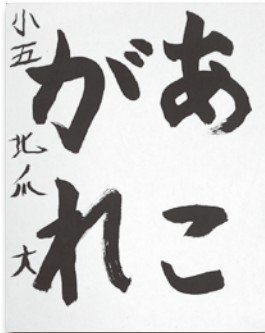 あこ
がれ
小五 北爪 大